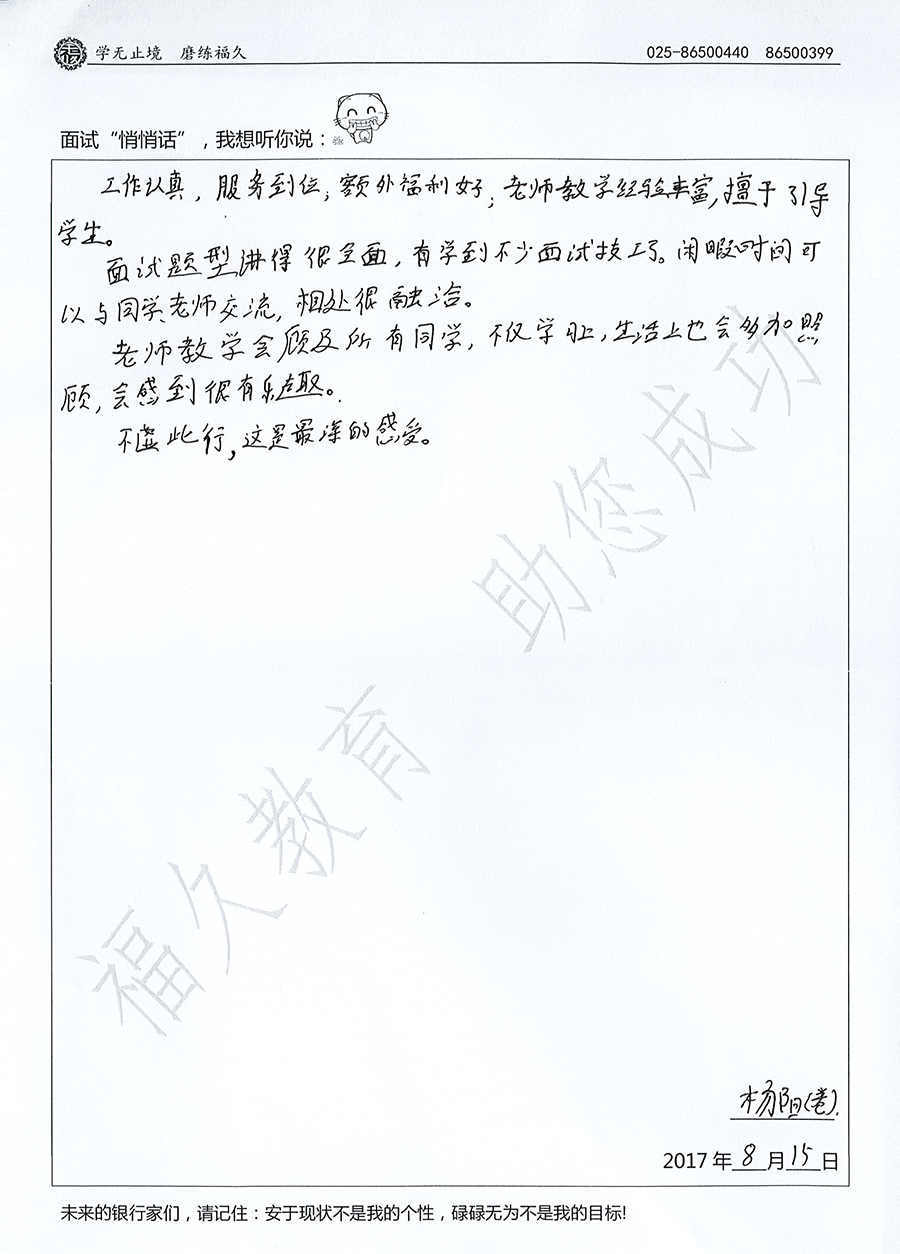 学无止境 磨练福久
025-86500440 86500399
面试“悄悄话”，我想听你说：
工作认真，服务到位；额外福利好；老师教学经验丰富，擅于引导
学生。
面试题型讲得很全面，有学到不少面试技巧。闲暇时间可
以与同学、老师交流，相处很融洽。
老师教学会顾及所有同学，不仅学习上，生活上也会多加照
顾，会感到很有乐趣。
不虚此行，这是最深的感受。
助您成功
福久教育
杨阳(卷).
2017年8月15日
未来的银行家们，请记住：安于现状不是我的个性，碌碌无为不是我的目标!